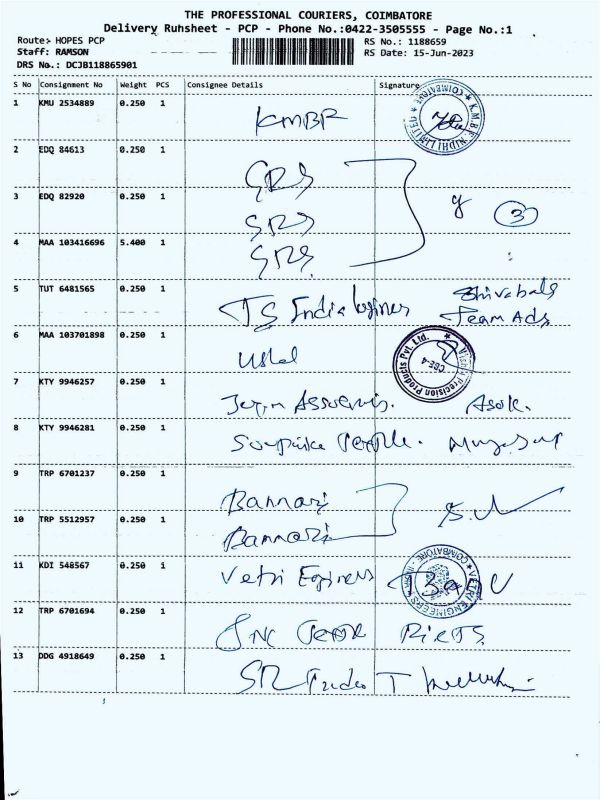 THE PROFESSIONAL COURIERS, COIMBATORE
Delivery Ruhsheet - PCP - Phone No.:0422-3505555 - Page No.:1
Route: HOPES PCP RS No.: 1188659
Staff: RAMSON RS Date: 15-Jun-2023
DRS No.: DCJB118865901
S No Consignment No Weight PCS Consignee Details Signature
1 KMU 2534889 0.250 1 KMBR K.M.B.R. NIDHI LIMITED * COIMBATORE *
2 EDQ 84613 0.250 1 SRS
3 EDQ 82920 0.250 1 SRS 3
4 MAA 103416696 5.400 1 SRS
5 TUT 6481565 0.250 1 TS India Team Ads
6 MAA 103701898 0.250 1 Precision Products Pvt. Ltd. CBE-4
7 KTY 9946257 0.250 1 Asok.
8 KTY 9946281 0.250 1
9 TRP 6701237 0.250 1 Bannari
10 TRP 5512957 0.250 1 Bannari
11 KDI 548567 0.250 1 Vetri Engineers VETRI ENGINEERS * COIMBATORE
12 TRP 6701694 0.250 1
13 DDG 4918649 0.250 1 T